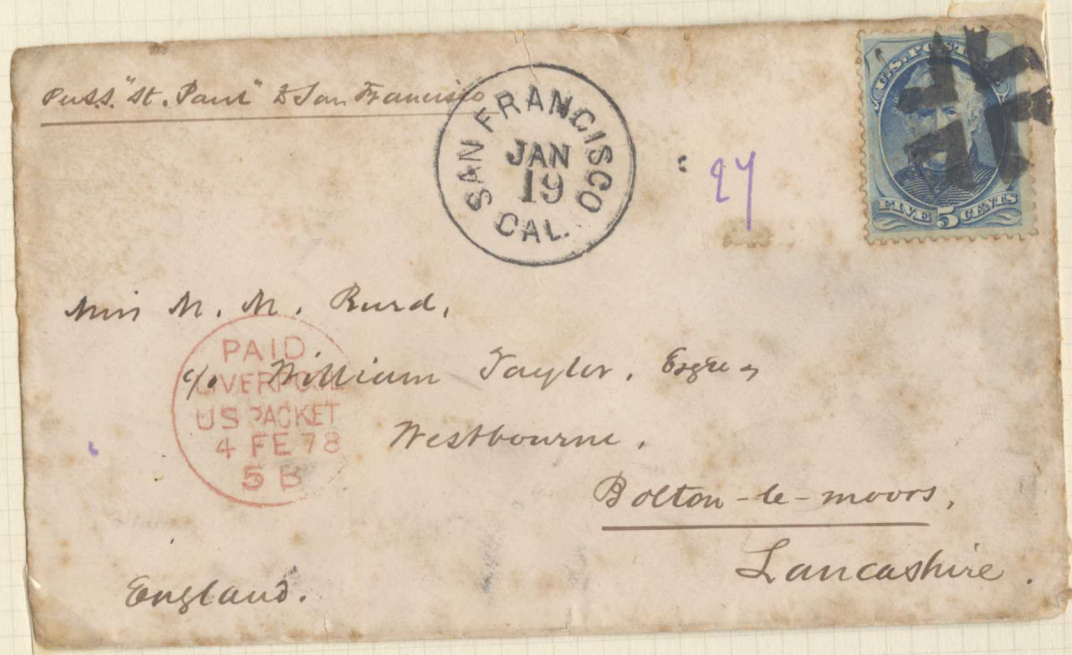 Per S.S. "St. Paul" to San Francisco
SAN FRANCISCO
JAN
19
CAL.
: 27
U.S. POSTAGE
FIVE 5 CENTS
Miss M. M. Burd,
c/o William Taylor, Esqre,
Westbourne,
Bolton-le-moors,
Lancashire.
England.
PAID
LIVERPOOL
US PACKET
4 FE 78
5 B